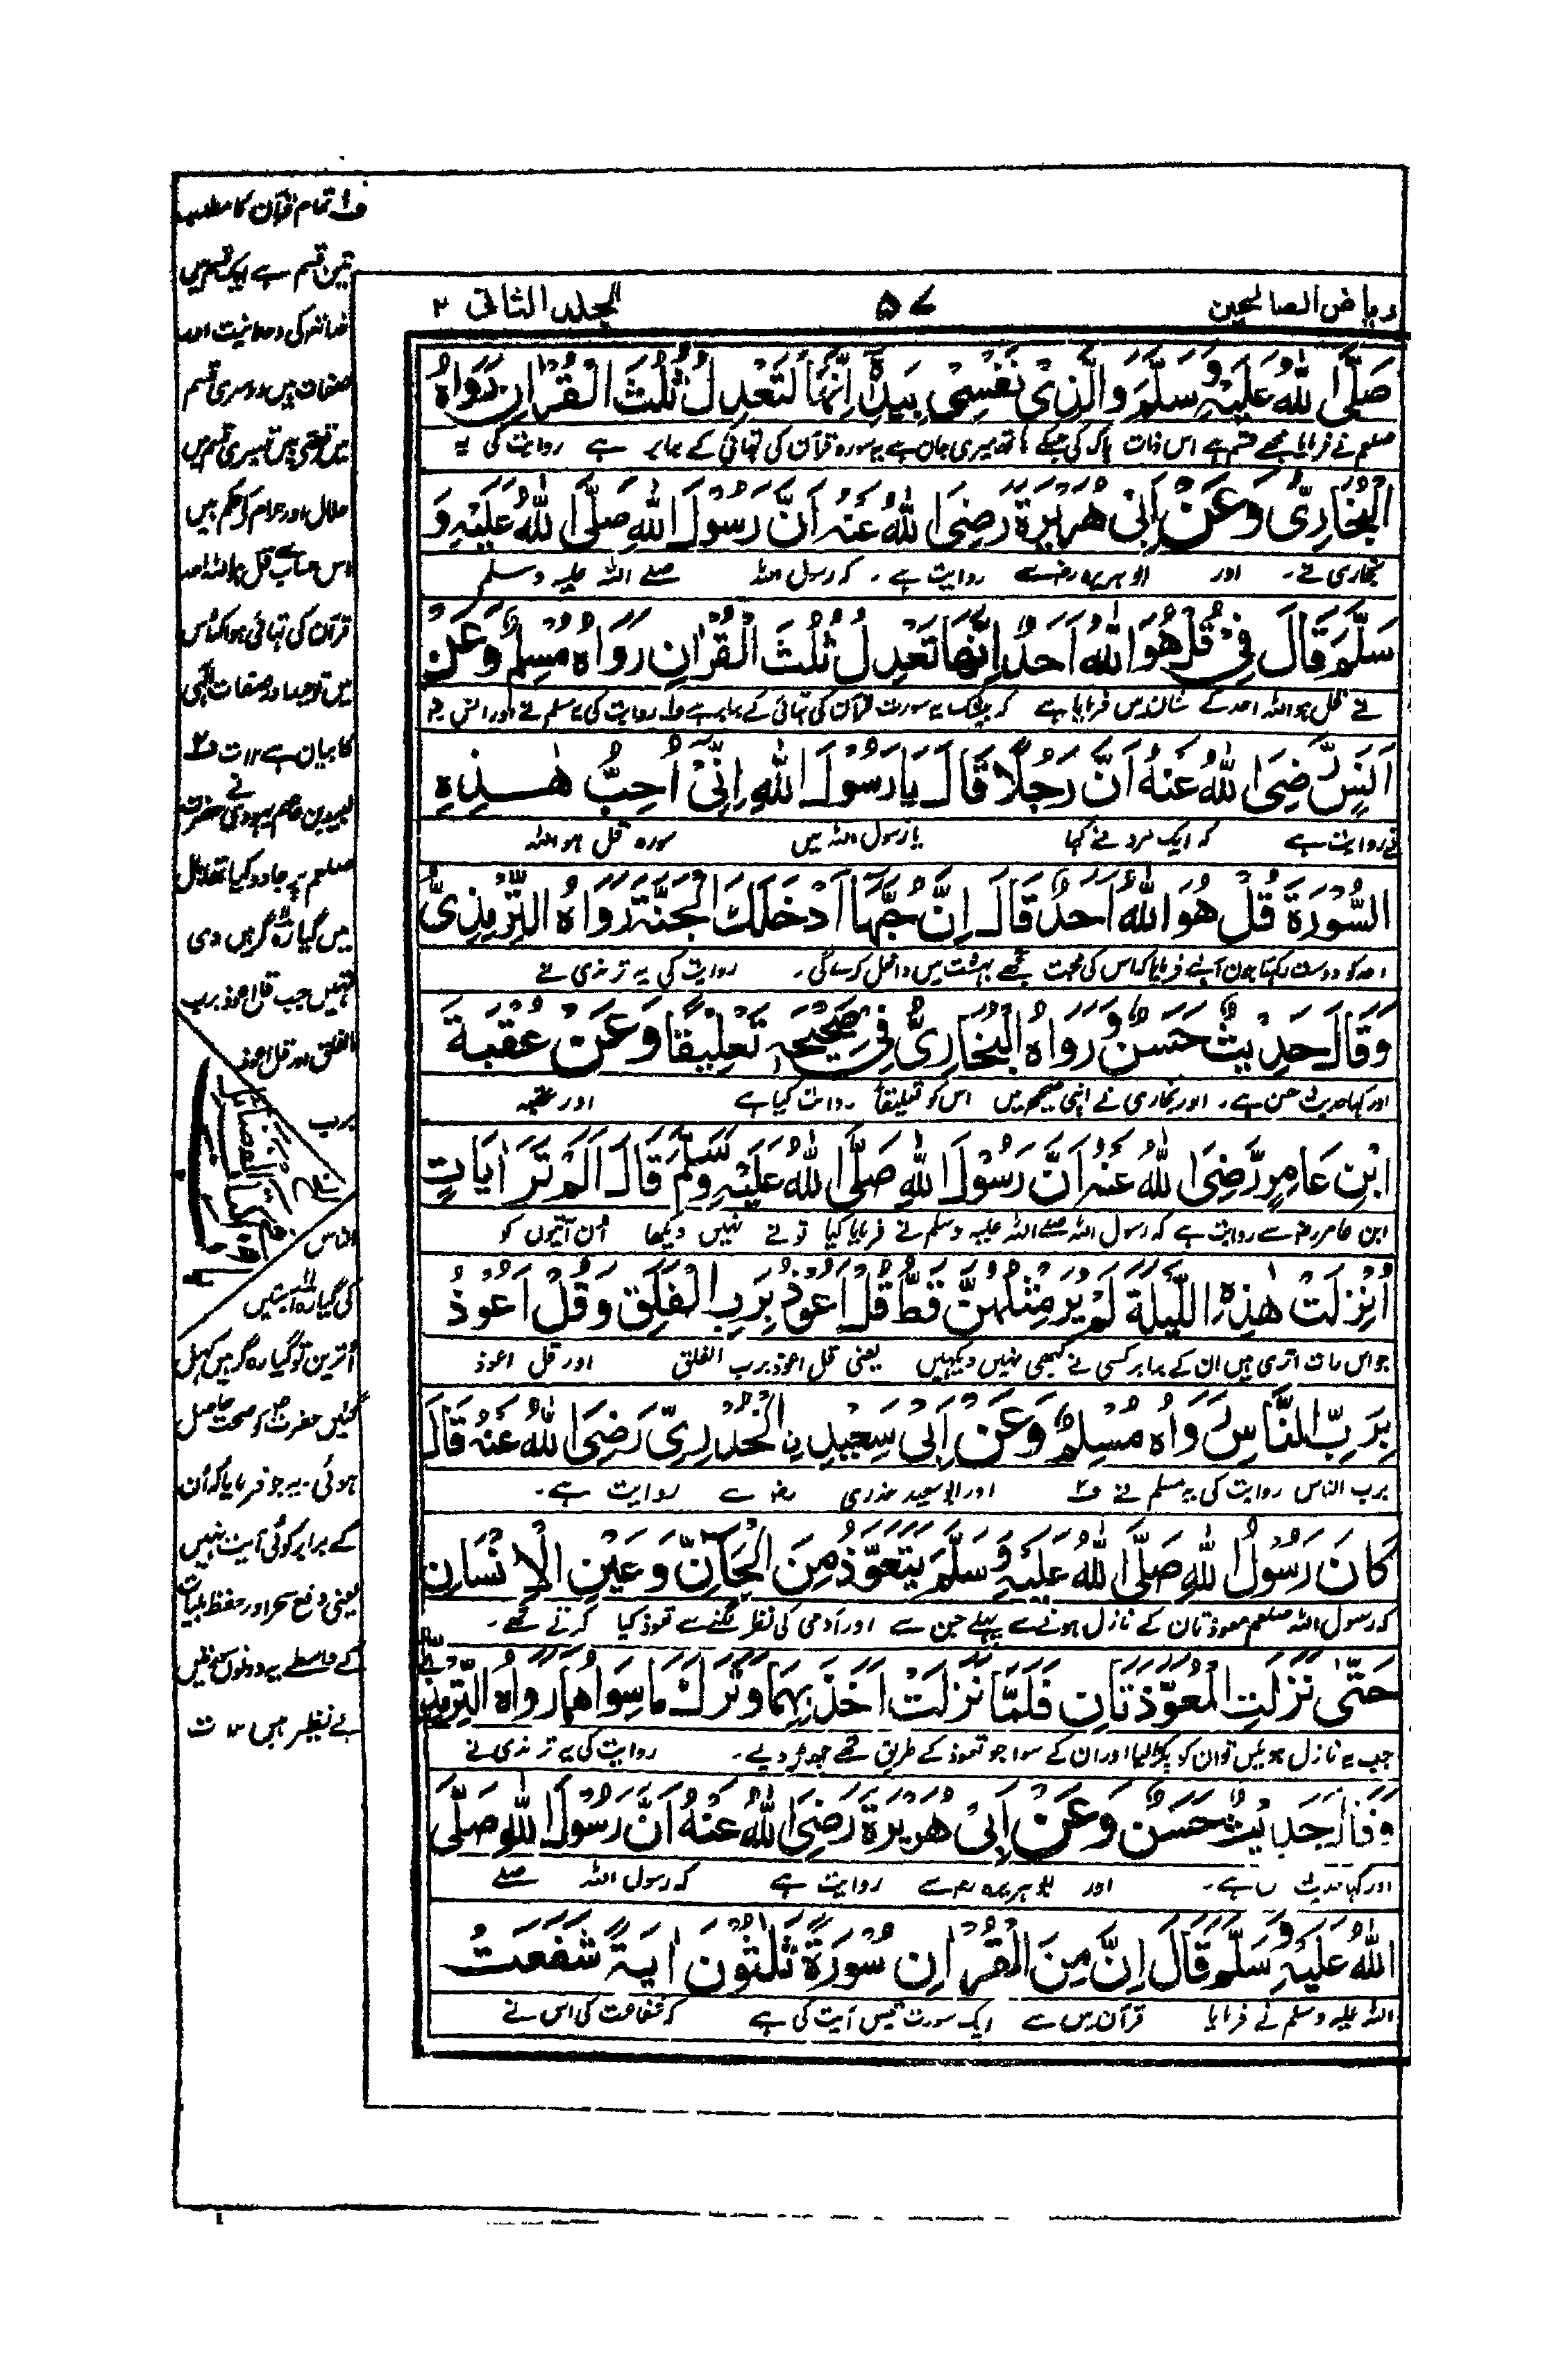 ریاض الصالحین ۵۷ الجلد الثانی ۲
صَلَّى اللهُ عَلَيْهِ وَسَلَّمَ وَالَّذِيْ نَفْسِيْ بِيَدِهٖ اِنَّهَا لَتَعْدِلُ ثُلُثَ الْقُرْاٰنِ رَوَاهُ
صلعم نے فرمایا مجھے قسم ہے اس ذات پاک کی جسکے ہاتھ میری جان ہے یہ سورہ قرآن کی تہائی کے برابر ہے روایت کی یہ
الْبُخَارِيُّ وَعَنْ اَبِيْ هُرَيْرَةَ رَضِيَ اللهُ عَنْهُ اَنَّ رَسُوْلَ اللهِ صَلَّى اللهُ عَلَيْهِ وَ
بخاری نے۔ اور ابو ہریرہ رضہ سے روایت ہے۔ کہ رسول اللہ صلے اللہ علیہ وسلم
سَلَّمَ قَالَ فِيْ قُلْ هُوَ اللهُ اَحَدٌ اِنَّهَا تَعْدِلُ ثُلُثَ الْقُرْاٰنِ رَوَاهُ مُسْلِمٌ وَعَنْ
نے قل ہو اللہ احد کے شان میں فرمایا ہے کہ بیشک یہ سورت قرآن کی تہائی کے برابر ہے ف۱ روایت کی یہ مسلم نے اور انس رضہ
اَنَسٍ رَّضِيَ اللهُ عَنْهُ اَنَّ رَجُلًا قَالَ يَا رَسُوْلَ اللهِ اِنِّيْ اُحِبُّ هٰذِهِ
سے روایت ہے کہ ایک مرد نے کہا یا رسول اللہ میں سورہ قل ہو اللہ
السُّوْرَةَ قُلْ هُوَ اللهُ اَحَدٌ قَالَ اِنَّ حُبَّهَا اَدْخَلَكَ الْجَنَّةَ رَوَاهُ التِّرْمِذِيُّ
احد کو دوست رکھتا ہوں آپنے فرمایا کہ اس کی محبت تجھے بہشت میں داخل کرے گی۔ روایت کی یہ ترمذی نے
وَقَالَ حَدِيْثٌ حَسَنٌ وَرَوَاهُ الْبُخَارِيُّ فِيْ صَحِيْحِهٖ تَعْلِيْقًا وَعَنْ عُقْبَةَ
اور کہا حدیث حسن ہے۔ اور بخاری نے اپنی صحیح میں اس کو تعلیقاً روایت کیا ہے اور عقبہ
ابْنِ عَامِرٍ رَّضِيَ اللهُ عَنْهُ اَنَّ رَسُوْلَ اللهِ صَلَّى اللهُ عَلَيْهِ وَسَلَّمَ قَالَ اَلَمْ تَرَ اٰيَاتٍ
ابن عامر رضہ سے روایت ہے کہ رسول اللہ صلے اللہ علیہ وسلم نے فرمایا کیا تو نے نہیں دیکھا اُن آیتوں کو
اُنْزِلَتْ هٰذِهِ اللَّيْلَةَ لَمْ يُرَ مِثْلُهُنَّ قَطُّ قُلْ اَعُوْذُ بِرَبِّ الْفَلَقِ وَقُلْ اَعُوْذُ
جو اس رات اتری ہیں ان کے برابر کسی نے کبھی نہیں دیکھیں یعنی قل اعوذ برب الفلق اور قل اعوذ
بِرَبِّ النَّاسِ رَوَاهُ مُسْلِمٌ وَعَنْ اَبِيْ سَعِيْدِ نِ الْخُدْرِيِّ رَضِيَ اللهُ عَنْهُ قَالَ
برب الناس روایت کی یہ مسلم نے ف۲ اور ابو سعید خدری رضہ سے روایت ہے۔
كَانَ رَسُوْلُ اللهِ صَلَّى اللهُ عَلَيْهِ وَسَلَّمَ يَتَعَوَّذُ مِنَ الْجَآنِّ وَعَيْنِ الْاِنْسَانِ
کہ رسول اللہ صلعم معوذتان کے نازل ہونے سے پہلے جن سے اور آدمی کی نظر لگنے سے تعوذ کیا کرتے تھے۔
حَتّٰى نَزَلَتِ الْمُعَوِّذَتَانِ فَلَمَّا نَزَلَتْ اَخَذَ بِهِمَا وَتَرَكَ مَا سِوَاهُمَا رَوَاهُ التِّرْمِذِيُّ
جب یہ نازل ہوئیں تو ان کو پکڑ لیا اور ان کے سوا جو تعوذ کے طریق تھے چھوڑ دیے۔ روایت کی یہ ترمذی نے
وَقَالَ حَدِيْثٌ حَسَنٌ وَعَنْ اَبِيْ هُرَيْرَةَ رَضِيَ اللهُ عَنْهُ اَنَّ رَسُوْلَ اللهِ صَلَّى
اور کہا حدیث ہے۔ اور ابو ہریرہ رضہ سے روایت ہے کہ رسول اللہ صلے
اللهُ عَلَيْهِ وَسَلَّمَ قَالَ اِنَّ مِنَ الْقُرْاٰنِ سُوْرَةً ثَلٰثُوْنَ اٰيَةً شَفَعَتْ
اللہ علیہ وسلم نے فرمایا قرآن میں سے ایک سورت تیس آیت کی ہے کہ شفاعت کی اس نے
ف۱ تمام قرآن کا مطلب
تین قسم ہے ایک قسم میں
خدا تعالیٰ کی وحدانیت اور
صفات ہیں دوسری قسم
میں قصے ہیں تیسری قسم میں
حلال اور حرام کے حکم ہیں
اس حساب سے قل ہو اللہ احد
قرآن کی تہائی ہوا کہ اس
میں توحید اور صفات الٰہی
کا بیان ہے ۱۲ ت ف۲
لبید بن عاصم یہودی نے حضرت
صلعم پر جادو کیا تھا بال
میں گیارہ گرہیں دی
تھیں جب قل اعوذ برب
الفلق اور قل اعوذ
برب
الناس
کی گیارہ آیتیں
اُتریں تو گیارہ گرہیں کھل
گئیں حضرت کو صحت حاصل
ہوئی۔ یہ جو فرمایا کہ ان
کے برابر کوئی آیت نہیں
یعنی دفع سحر اور حفظ بلیات
کے واسطے یہ دونوں سورتیں
بے نظیر ہیں ۱۲ ت